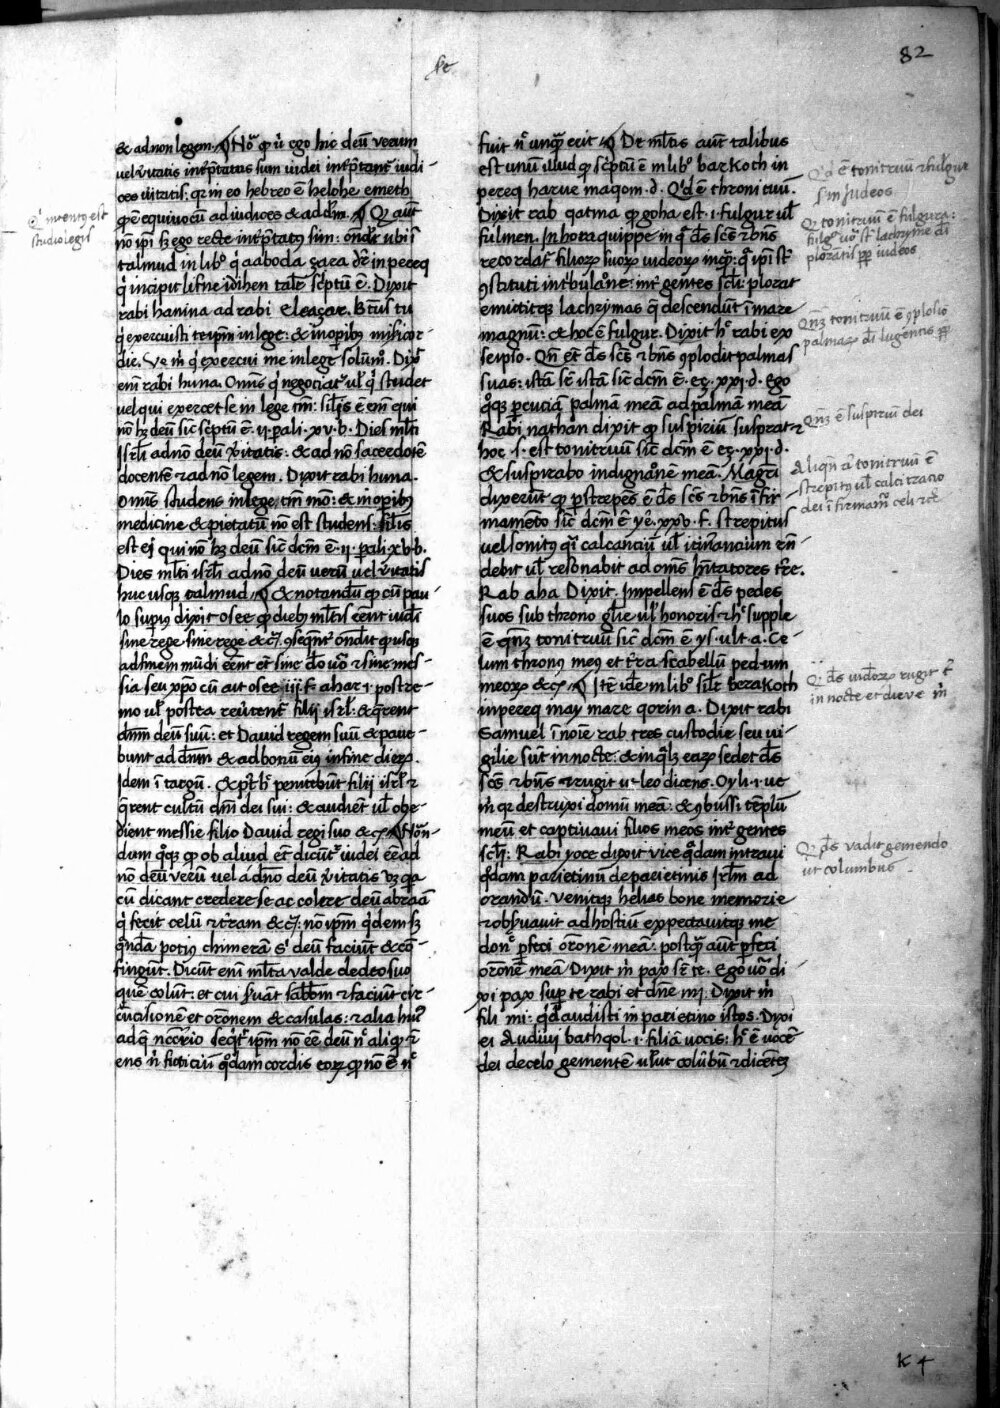 82
& ad non legem. Nō q ù ego hic deū verum
vel v̄itatis int̄p̄tatus sum iudei int̄p̄tant̄ iudi
ces v̄itatis: qr in eo hebreo ē helohe emeth
qd ē equivocū ad iudices & ad dm̄. Q aūt
nō ip̄i sꝫ ego recte int̄p̄tatus sim: ondit̄ ubi s̄
talmud in libº q̇ aaboda zara dr̄ in pereq
q̇ incipit lifne idihen talē sc̄ptū ē. Dixit
rabi hanina ad rabi eleazar. Btūs tu
q̇ exercuisti teip̄m in lege: & in opibꝰ mīsicor
die. Ve m̄ q̇ exercui me in lege solūmº. Dix̄
eni rabi huna. Omīs q̇ negociat̄ ul̄ q̇ studet
vel qui exercet se in lege tm̄: sil̄is ē eni qui
nō hꝫ deū sic sc̄ptū ē. ii. pali. xv. b. Dies ml̄ti
isr̄l ad nō deū v̄itatis: & ad nō sacerdotē
docentē & ad nō legem. Dixit rabi huna.
Omīs studens in lege, tm̄ mō: & in opibꝰ
medicine & pietatū nō est studens: sil̄is
est ei qui nō hꝫ deū sic dcm̄ ē. ii. pali. xv. b.
Dies ml̄ti isr̄li ad nō deū verū vel v̄itatis
huc usqꝫ talmud. & notandū qd cū pau-
lo supiꝰ dixit osee qd diebꝰ ml̄tis erēnt iudei
sine rege sine rege &c. 9seqn̄t̄ ondit qd usqꝫ
ad finem mūdi erēnt et sine dō uō & sine mes-
sia seu xpō cū ait osee iij f. ahar .i. postre-
mo ul̄ postea rev̄tent̄ filii isr̄l: & q̄rent
dnm̄ deū suū: et David regem suū & pave-
bunt ad dnm̄ & ad bonū eiꝰ in fine dierꝫ.
Idem ī targū. & pꝰ hº penitebūnt filii isr̄l &
q̄rent cultū dnī dei sui: & audiēt ul̄ obe-
dient messie filio David regi suo &c. Nōn-
dum qꝫ qd ob aliud et dicūnt̄ iudei eē ad
nō deū verū vel ad nō deū v̄itatis vꝫ qa
cū dicant credere se ac colere deū abraā
q̇ fecit celū & t̄ram &c. nō ip̄m q̇dem sꝫ
qn̄da potiꝰ chimerā s' deū faciūt & cō-
fingūt. Dicūt eni ml̄ta valde de deo suo
quē colūt: et cui s̄vāt sabb̄m & faciūt cir-
cūcisionē et orōnem & casulas: & alia huiꝰ
ad q̄ nccr̄io seq̇t̄ ip̄m nō eē deū nº aliqd &
ens n̄ ficticiū qdam cordis eorꝫ qd nō ē nº
fuit nº unq̄ erit. De ml̄tis aūt talibus
est unū illud qd sc̄ptū ē in libº barKoth in
pereq harue maqom. d. Qid ē thronituū.
Dixit rab qatina qd goha est .i. fulgur ul̄
fulmen. In hora quippe in q̄ ds̄ scs̄ & bn̄s
recordat̄ filiorꝫ suorꝫ iudeorꝫ inq̄: q ip̄i st̄
9stituti in tbulaōne: int̄ gentes scl̄i plorat
emittitqꝫ lachrymas q̄ descendūt ī mare
magnū: & hoc ē fulgur. Dixit hº rabi ex
seipso. Qn̄ et ds̄ scs̄ & bn̄s 9plodit palmas
suas: istā sē istā sic dcm̄ ē. ez. xxi. d. Ego
qºqꝫ pcutiā palmā meā ad palmā meā
Rabi nathan dixit qd suspiriū suspirat &
hoc .s. est tonitruū sic dcm̄ ē ez. xxi. d.
& suspirabo indignaōnē meā. Magrī
dixerūt qd pstrepēs ē ds̄ scs̄ & bn̄s ī fir
mamēto sic dcm̄ ē ye. xxv. f. strepitus
vel sonitꝰ qī calcanciū ul̄ itinancium &n-
debit ul̄ resonabit ad omīs hītatores tr̄e.
Rab aha Dixit. Impellens ē ds̄ pedes
suos sub throno gl̄ie ul̄ honoris & hº supple
ē qn̄qꝫ tonitruū sic dcm̄ ē ys. ult. a. Ce-
lum thronꝰ meꝰ et t̄ra scabellū pedum
meorꝫ &c. Itē idē in libº sil̄r beraKoth
in pereq may mare qorin a. Dixit rabi
Samuel ī noīe rab tres custodie seu vi-
gilie sūt in nocte: & in qlꝫ earꝫ sedet ds̄
scs̄ & bn̄s & rugit ut leo dicens. Oyli .i. ve
m̄ qr destruxi domū meā: & 9bussi tēplū
meū et captivavi filios meos int̄ gentes
scl̄i: Rabi yoce dixit vice qdam intravi
qdam parietinū de parietinis Irl̄m ad
orandū. venitqꝫ helias bone memorie
& obs̄vavit ad hostiū expectavitqꝫ me
donº pfeci orōnē meā. postq̄ aūt pfeci
orōnē meā Dixit m̄ pax sē te. Ego uō di
xi pax sup te rabi et dn̄e mi. Dixit m̄
fili mi: qd audisti in parietino isto. Dixi
ei Audivi bathqol .i. filiā vocis: hº ē vocē
dei de celo gementē ul̄ut colūbū & dicētē
Qi intentꝰ est
studio legis
Qd ē tonitruū & fulgur
s̄m Iudeos
Q tonitruū ē fulgura:
fulgꝰ uō st̄ lachryme di
plorātis pp iudeos
Qn̄qꝫ tonitruū ē 9plosio
palmarꝫ di lugentis pp
Qn̄qꝫ ē suspiriū dei
Aliqn̄ aͥ tonitruū ē
strepitꝰ ul̄ calcitracio
dei ī firmam̄ celi &c
Q ds̄ iudeorꝫ rugit t̄
in nocte et die ve m̄
Q ds̄ vadit gemendo
ut columbus
K 4